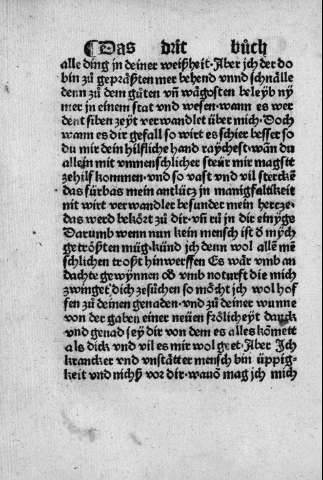 ¶ Das drit bůch
alle ding jn deiner weißheit. Aber jch der do
bin zů gepräßten mer behend vnnd schnälle
denn zů dem gůten vñ wägosten beleyb ny
mer in einem stat vnd wesen. wann es wer
dent siben zeyt verwandlet über mich. Doch
wann es dir gefall so wirt es schier besser so
du mir dein hilfliche hand raychest. wañ du
allein mit vnmenschlicher steür mir magstt
zehilf kommen. vnd so vast vnd vil sterckẽ
das fürbas mein antlütz jn manigfaltikeit
nit wirt verwandler besunder mein hertze.
das werd bekört zů dir. vñ rů jn dir einyge
Darumb wenn nun kein mensch ist ð mych
getrößten müg. künd jch denn wol alle me͂
schlichen trost hinwerffen Es wär vmb an
dachte gewynnen oð vmb noturft die mich
zwinget dich zesůchen so möcht jch wol hof
fen zů deinen genaden. vnd zů deiner wunne
von der gaben einer neüen frölicheyt danck
vnd genad sey dir von dem es alles kömett
als dick vnd vil es mir wol geet. Aber Jch
krancker vnd vnstätter mensch bin üppig.
keit vnd nichß vor dir. wauõ mag jch mich